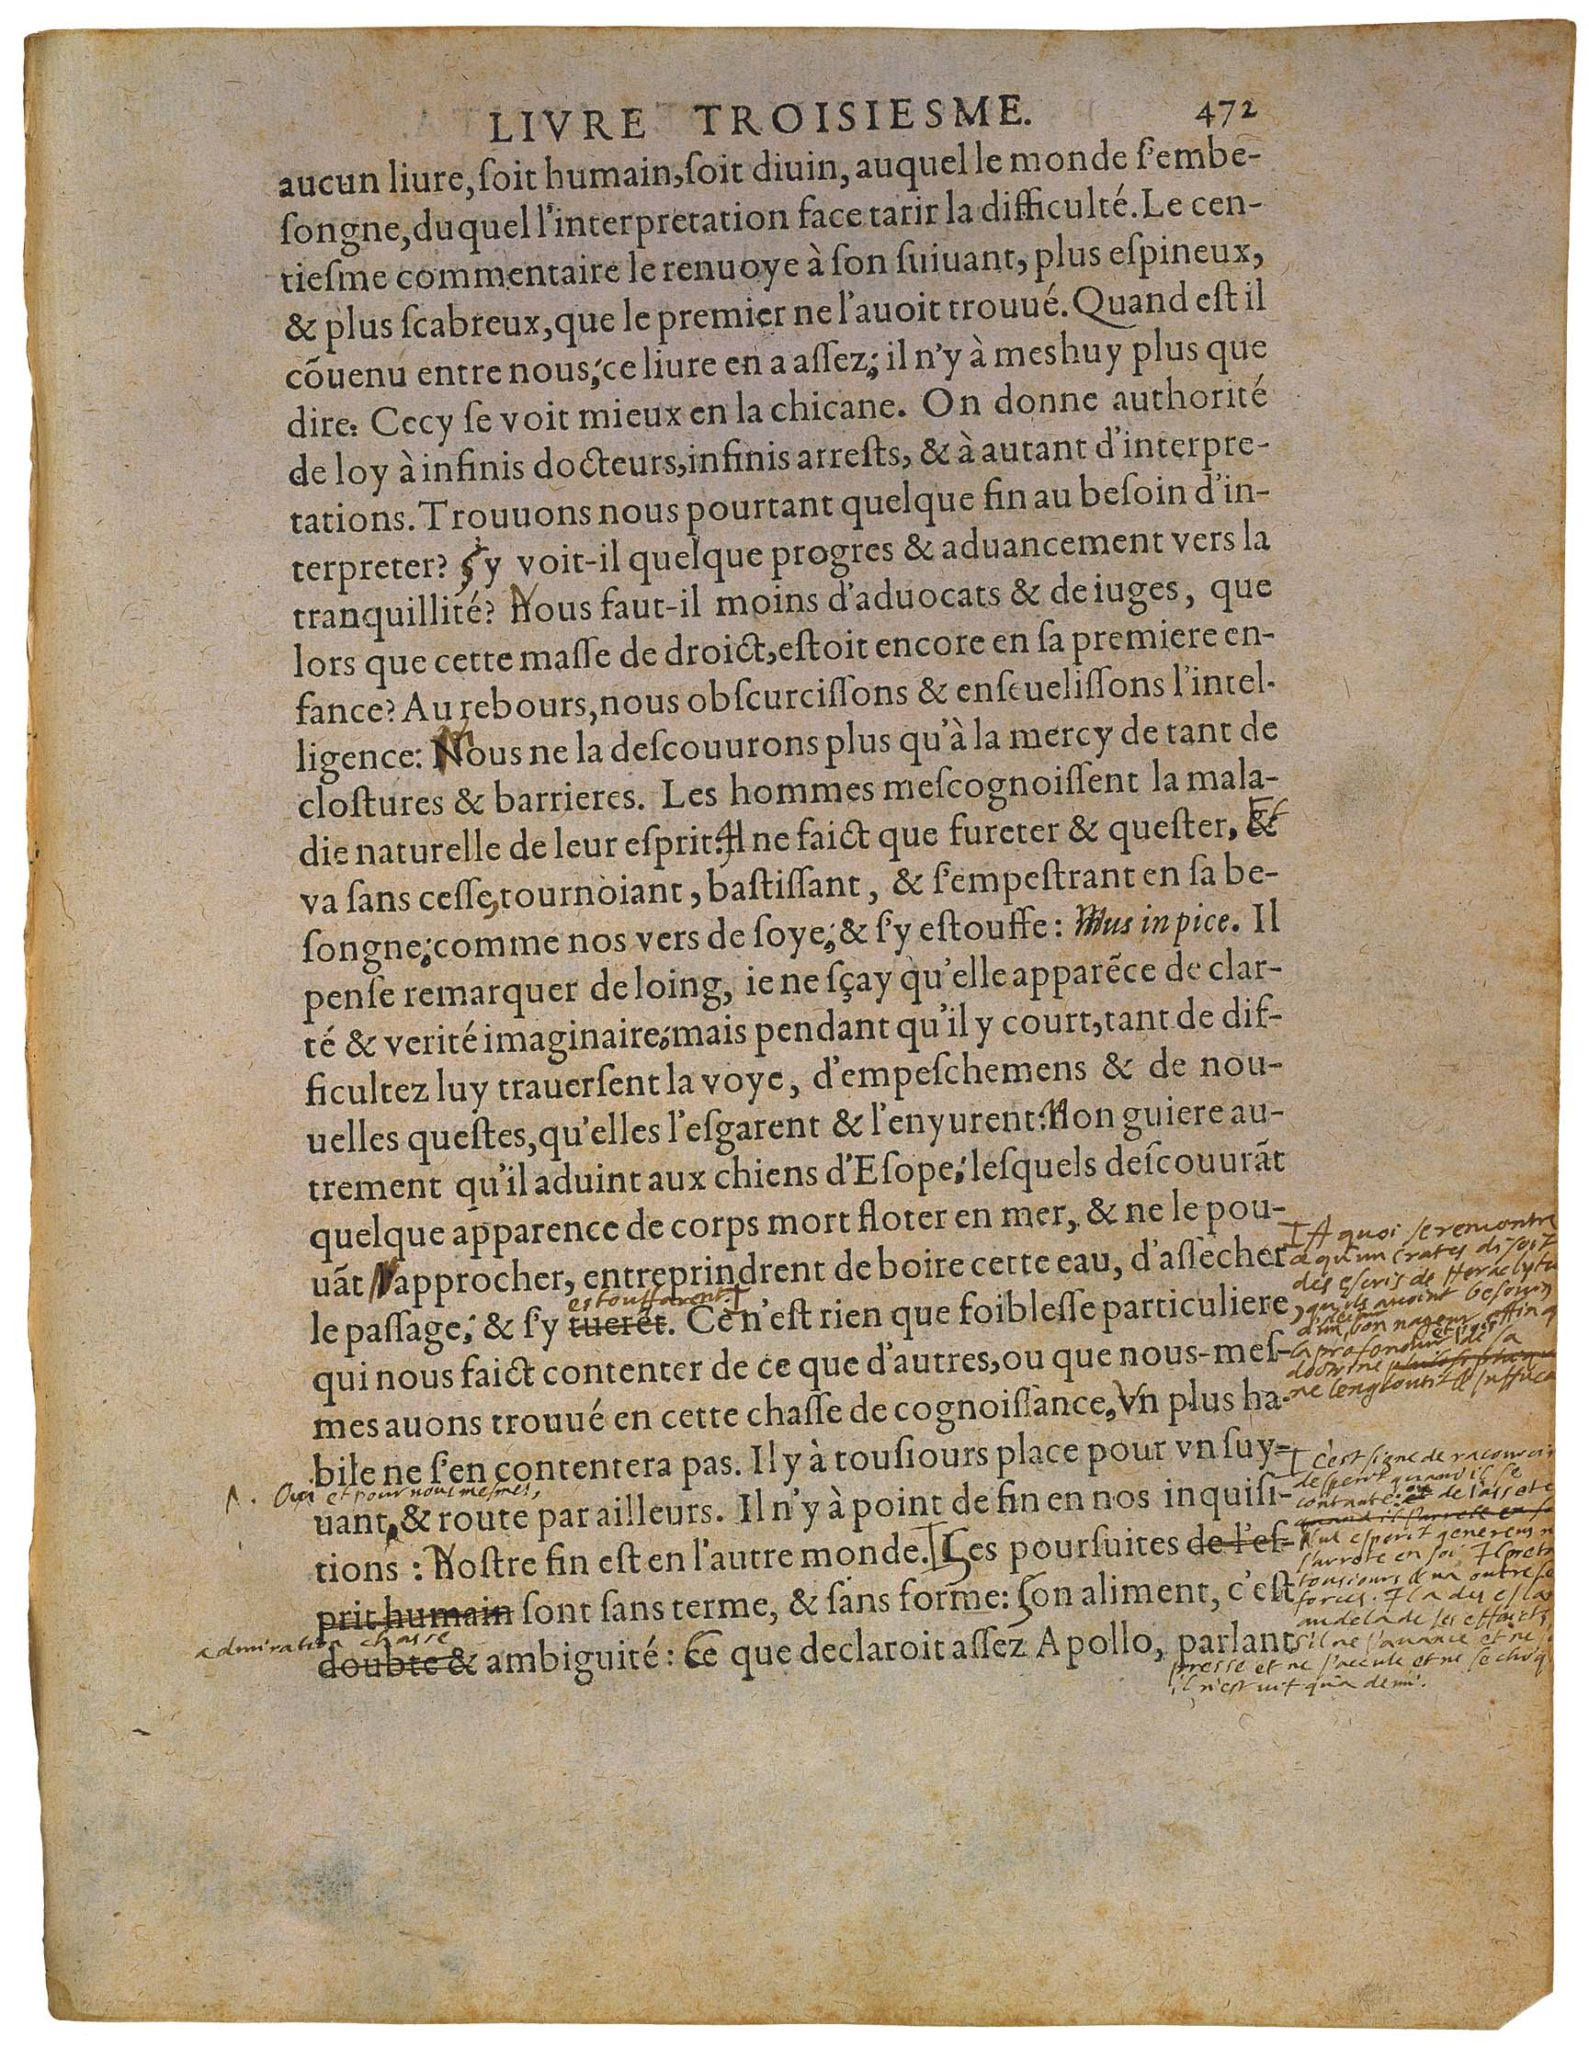 LIVRE TROISIESME. 472
aucun liure, ſoit humain, ſoit diuin, auquel le monde ſ'embe-
ſongne, duquel l'interpretation face tarir la difficulté. Le cen-
tieſme commentaire le renuoye à ſon ſuiuant, plus eſpineux,
& plus ſcabreux, que le premier ne l'auoit trouué. Quand eſt il
cõuenu entre nous, ce liure en a aſſez; il n'y à meshuy plus que
dire. Cecy ſe voit mieux en la chicane. On donne authorité
de loy à infinis docteurs, infinis arreſts, & à autant d'interpre-
tations. Trouuons nous pourtant quelque fin au beſoin d'in-
terpreter? ſ'y voit-il quelque progres & aduancement vers la
tranquillité? Nous faut-il moins d'aduocats & de iuges, que
lors que cette maſſe de droict, eſtoit encore en ſa premiere en-
fance? Au rebours, nous obſcurciſſons & enſeueliſſons l'intel-
ligence: Nous ne la deſcouurons plus qu'à la mercy de tant de
cloſtures & barrieres. Les hommes meſcognoiſſent la mala-
die naturelle de leur eſprit. Il ne faict que fureter & queſter, Et
va ſans ceſſe, tournoiant, baſtiſſant, & ſ'empeſtrant en ſa be-
ſongne; comme nos vers de ſoye; & ſ'y eſtouffe: Mus in pice. Il
penſe remarquer de loing, ie ne ſçay qu'elle apparẽce de clar-
té & verité imaginaire; mais pendant qu'il y court, tant de dif-
ficultez luy trauerſent la voye, d'empeſchemens & de nou-
uelles queſtes, qu'elles l'eſgarent & l'enyurent. Non guiere au-
trement qu'il aduint aux chiens d'Eſope; leſquels deſcouurãt
quelque apparence de corps mort floter en mer, & ne le pou-
uãt approcher, entreprindrent de boire cette eau, d'aſſecher
estouffarent
le paſſage; & ſ'y tueret. Ce n'eſt rien que foibleſſe particuliere,
qui nous faict contenter de ce que d'autres, ou que nous-meſ-
mes auons trouué en cette chaſſe de cognoiſſance, Vn plus ha-
bile ne ſ'en contentera pas. Il y à touſiours place pour vn ſuy-
Oui et pour nous mesmes,
uant, & route par ailleurs. Il n'y à point de fin en nos inquiſi-
tions: Noſtre fin eſt en l'autre monde. Les pourſuites de l'eſ-
prit humain ſont ſans terme, & ſans forme: Son aliment, c'eſt
admiration chasse
doubte & ambiguité: Ce que declaroit aſſez Apollo, parlant
A quoi se remontre
ce qu'un Crates disoit
des escris de Heraclytu
qu'ils avoint besouin
d'un bon nageur
la profondur et pois de sa
doctrine
ne l'engloutit & suffuca
C'est signe de racourci
desperit quand il se
contante ou de lassete
Nul esperit genereus n
s'arrete en soi Il pret
tousiours & va outre se
forces. Il a des esla
au dela de ses effaicts
s'il ne s'avance et ne
presse et ne s'accule et ne se choq
il n'est vif qu'a demi.